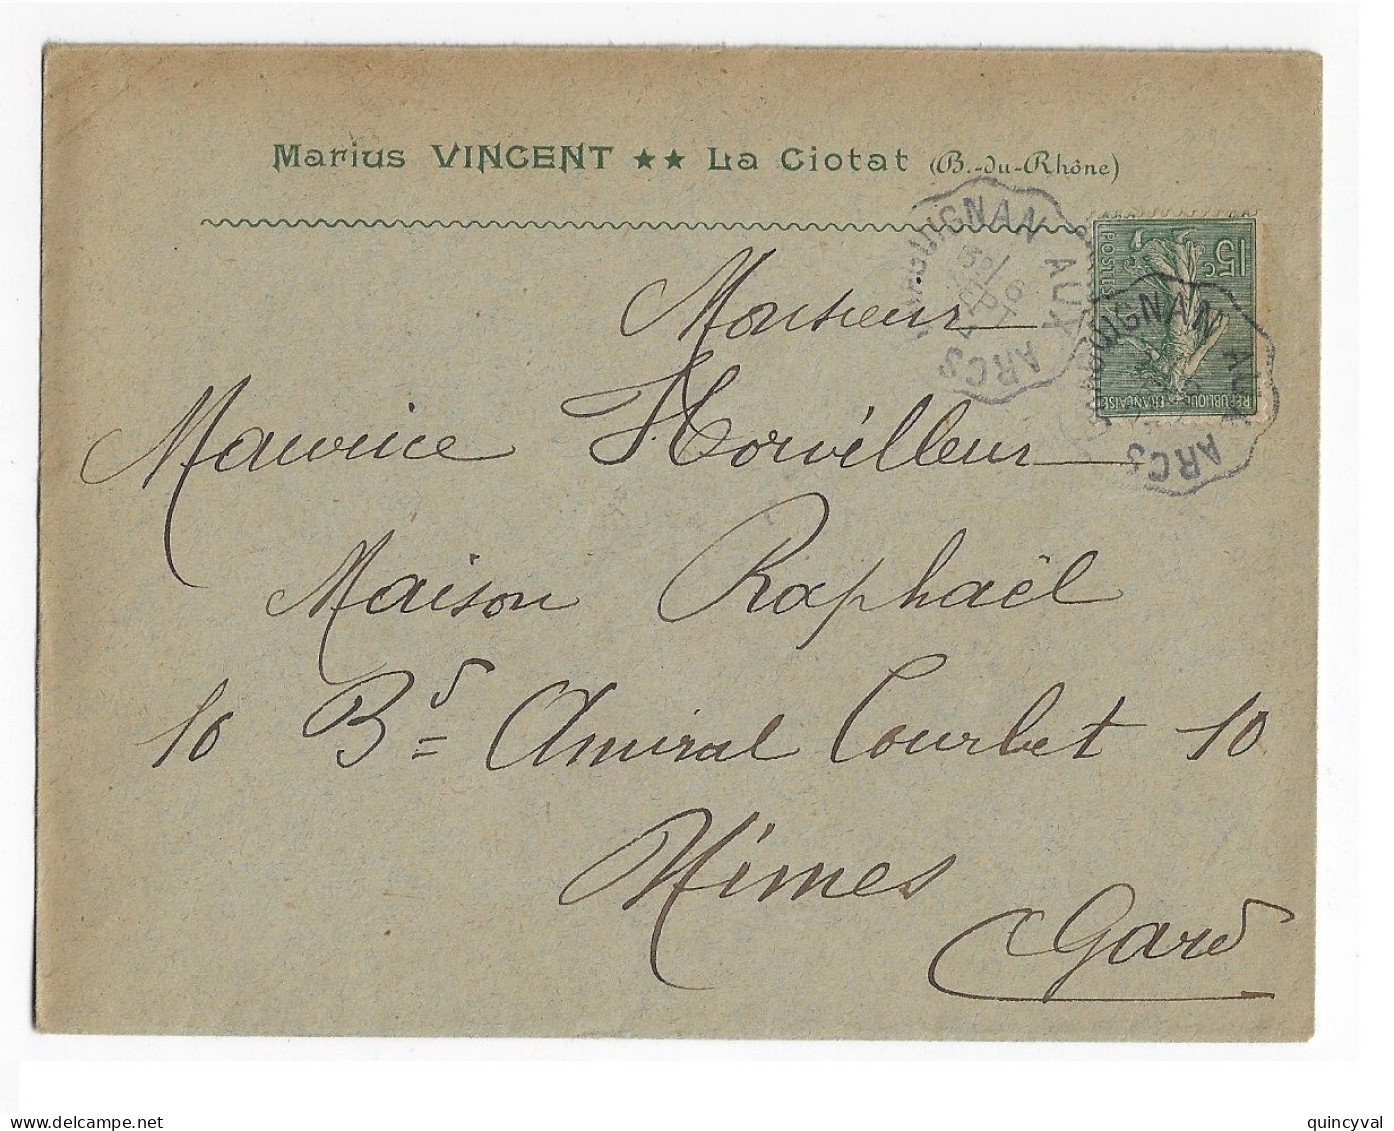 Marius VINCENT ★★ La Ciotat (B.-du-Rhône)
DRAGUIGNAN AUX ARCS
SEPT
15c
POSTES
REPUBLIQUE FRANÇAISE
DRAGUIGNAN AUX ARCS
Monsieur
Maurice Horvilleur
Maison Raphaël
10 Bd Amiral Courbet 10
Nîmes
Gard
delcampe.net
quincyval